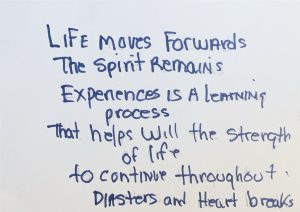 LIFE MOVES FORWARDS
The Spirit Remains
Experiences IS A learning
process
That helps Will the Strength
of life
to continue throughout.
DIASTERS and Heart breaks